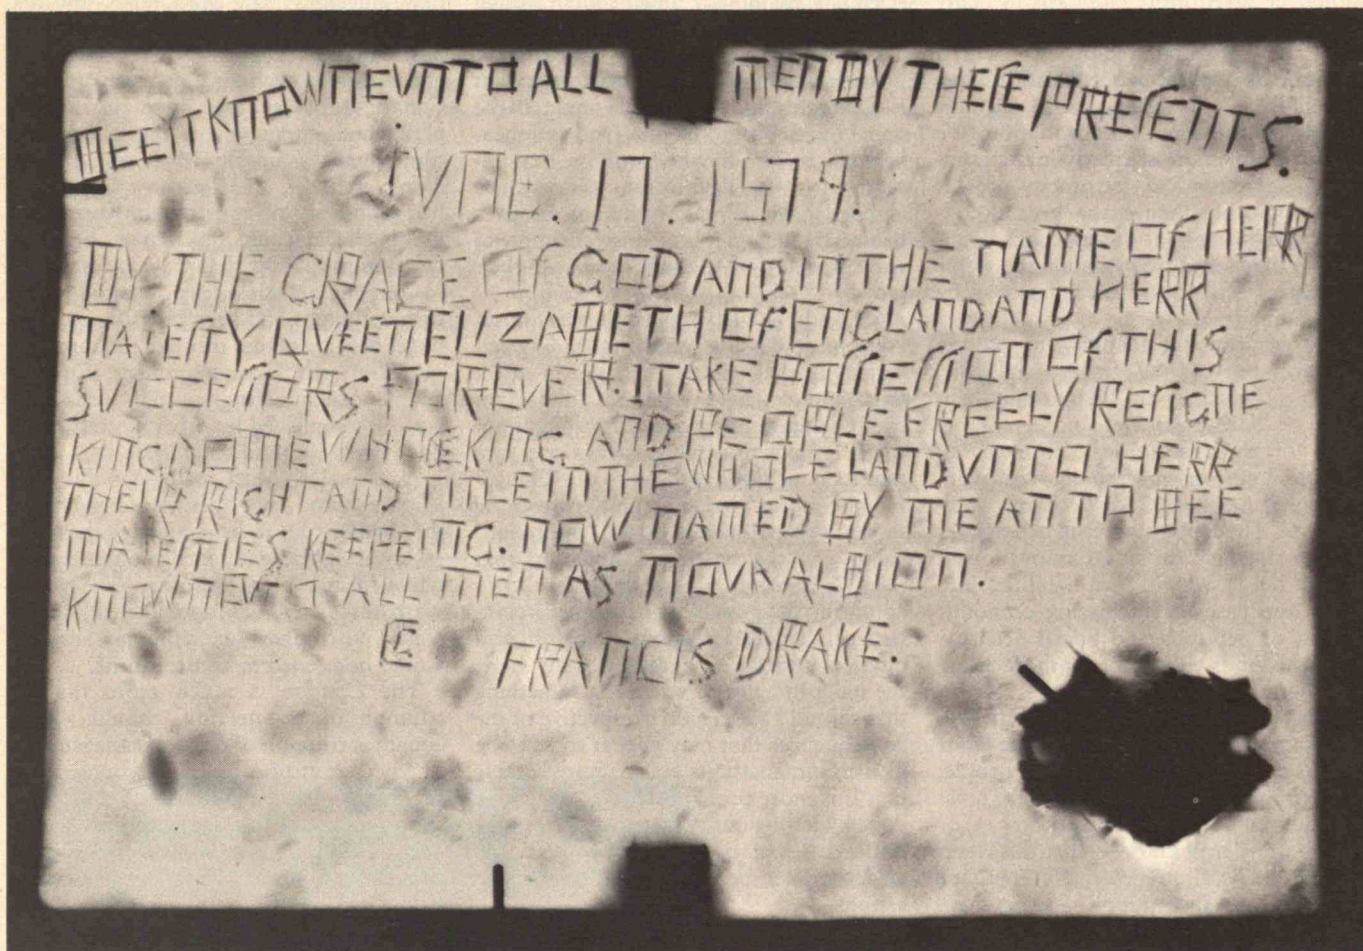 BEE IT KNOWNE VNTO ALL MEN BY THESE PRESENTS.
IVNE.17.1579.
BY THE GRACE OF GOD AND IN THE NAME OF HERR
MAIESTY QVEEN ELIZABETH OF ENGLAND AND HERR
SVCCESSORS FOREVER. I TAKE POSSESSION OF THIS
KINGDOME WHOSE KING AND PEOPLE FREELY RESIGNE
THEIR RIGHT AND TITLE IN THE WHOLE LAND VNTO HERR
MAIESTIES KEEPEING. NOW NAMED BY ME AN TO BEE
KNOWNE VNTO ALL MEN AS NOVA ALBION.
G FRANCIS DRAKE.